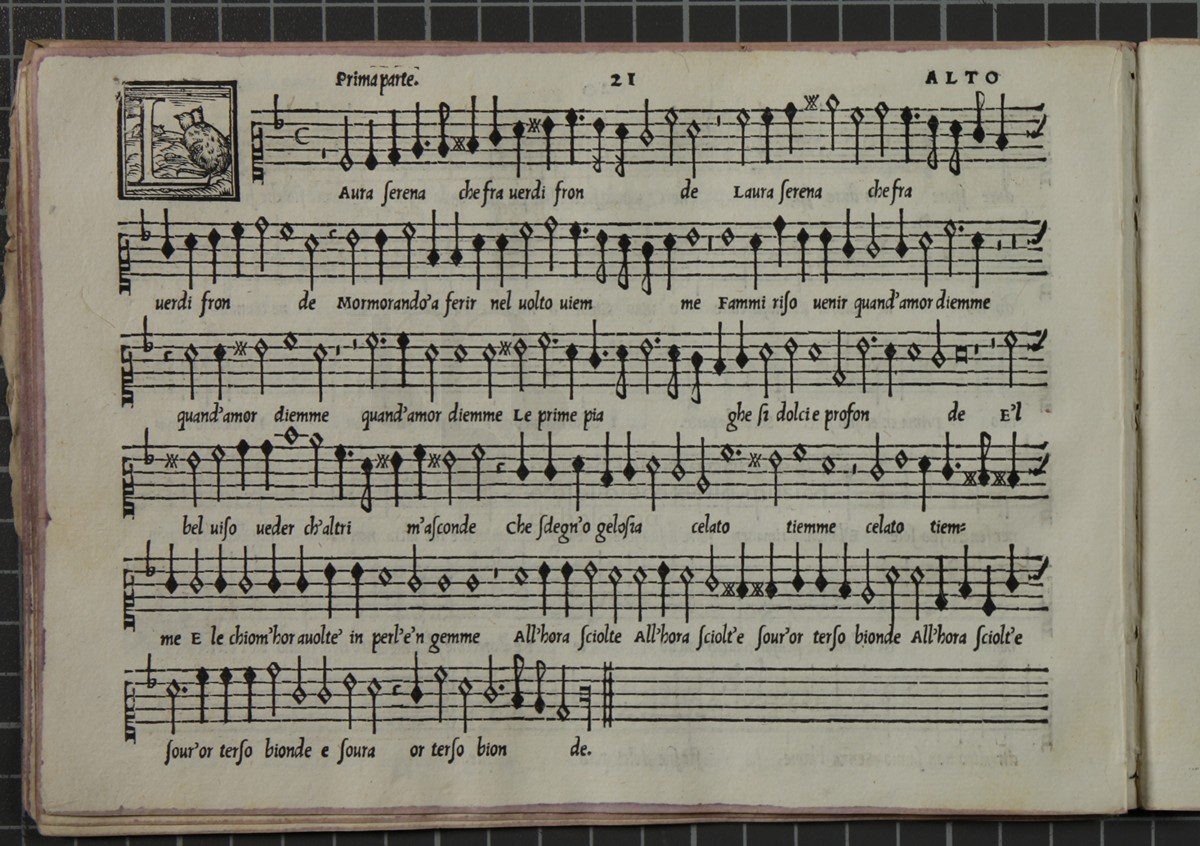 Prima parte. 21 ALTO
L
Aura ſerena che fra uerdi fron de Laura ſerena che fra
uerdi fron de Mormorando'a ferir nel uolto uiem me Fammi riſo uenir quand'amor diemme
quand'amor diemme quand'amor diemme Le prime pia ghe ſi dolci e profon de E'l
bel uiſo ueder ch'altri m'aſconde Che ſdegn'o geloſia celato tiemme celato tiem=
me E le chiom'hor auolte' in perl'e'n gemme All'hora ſciolte All'hora ſciolt'e ſour'or terſo bionde All'hora ſciolt'e
ſour'or terſo bionde e ſoura or terſo bion de.